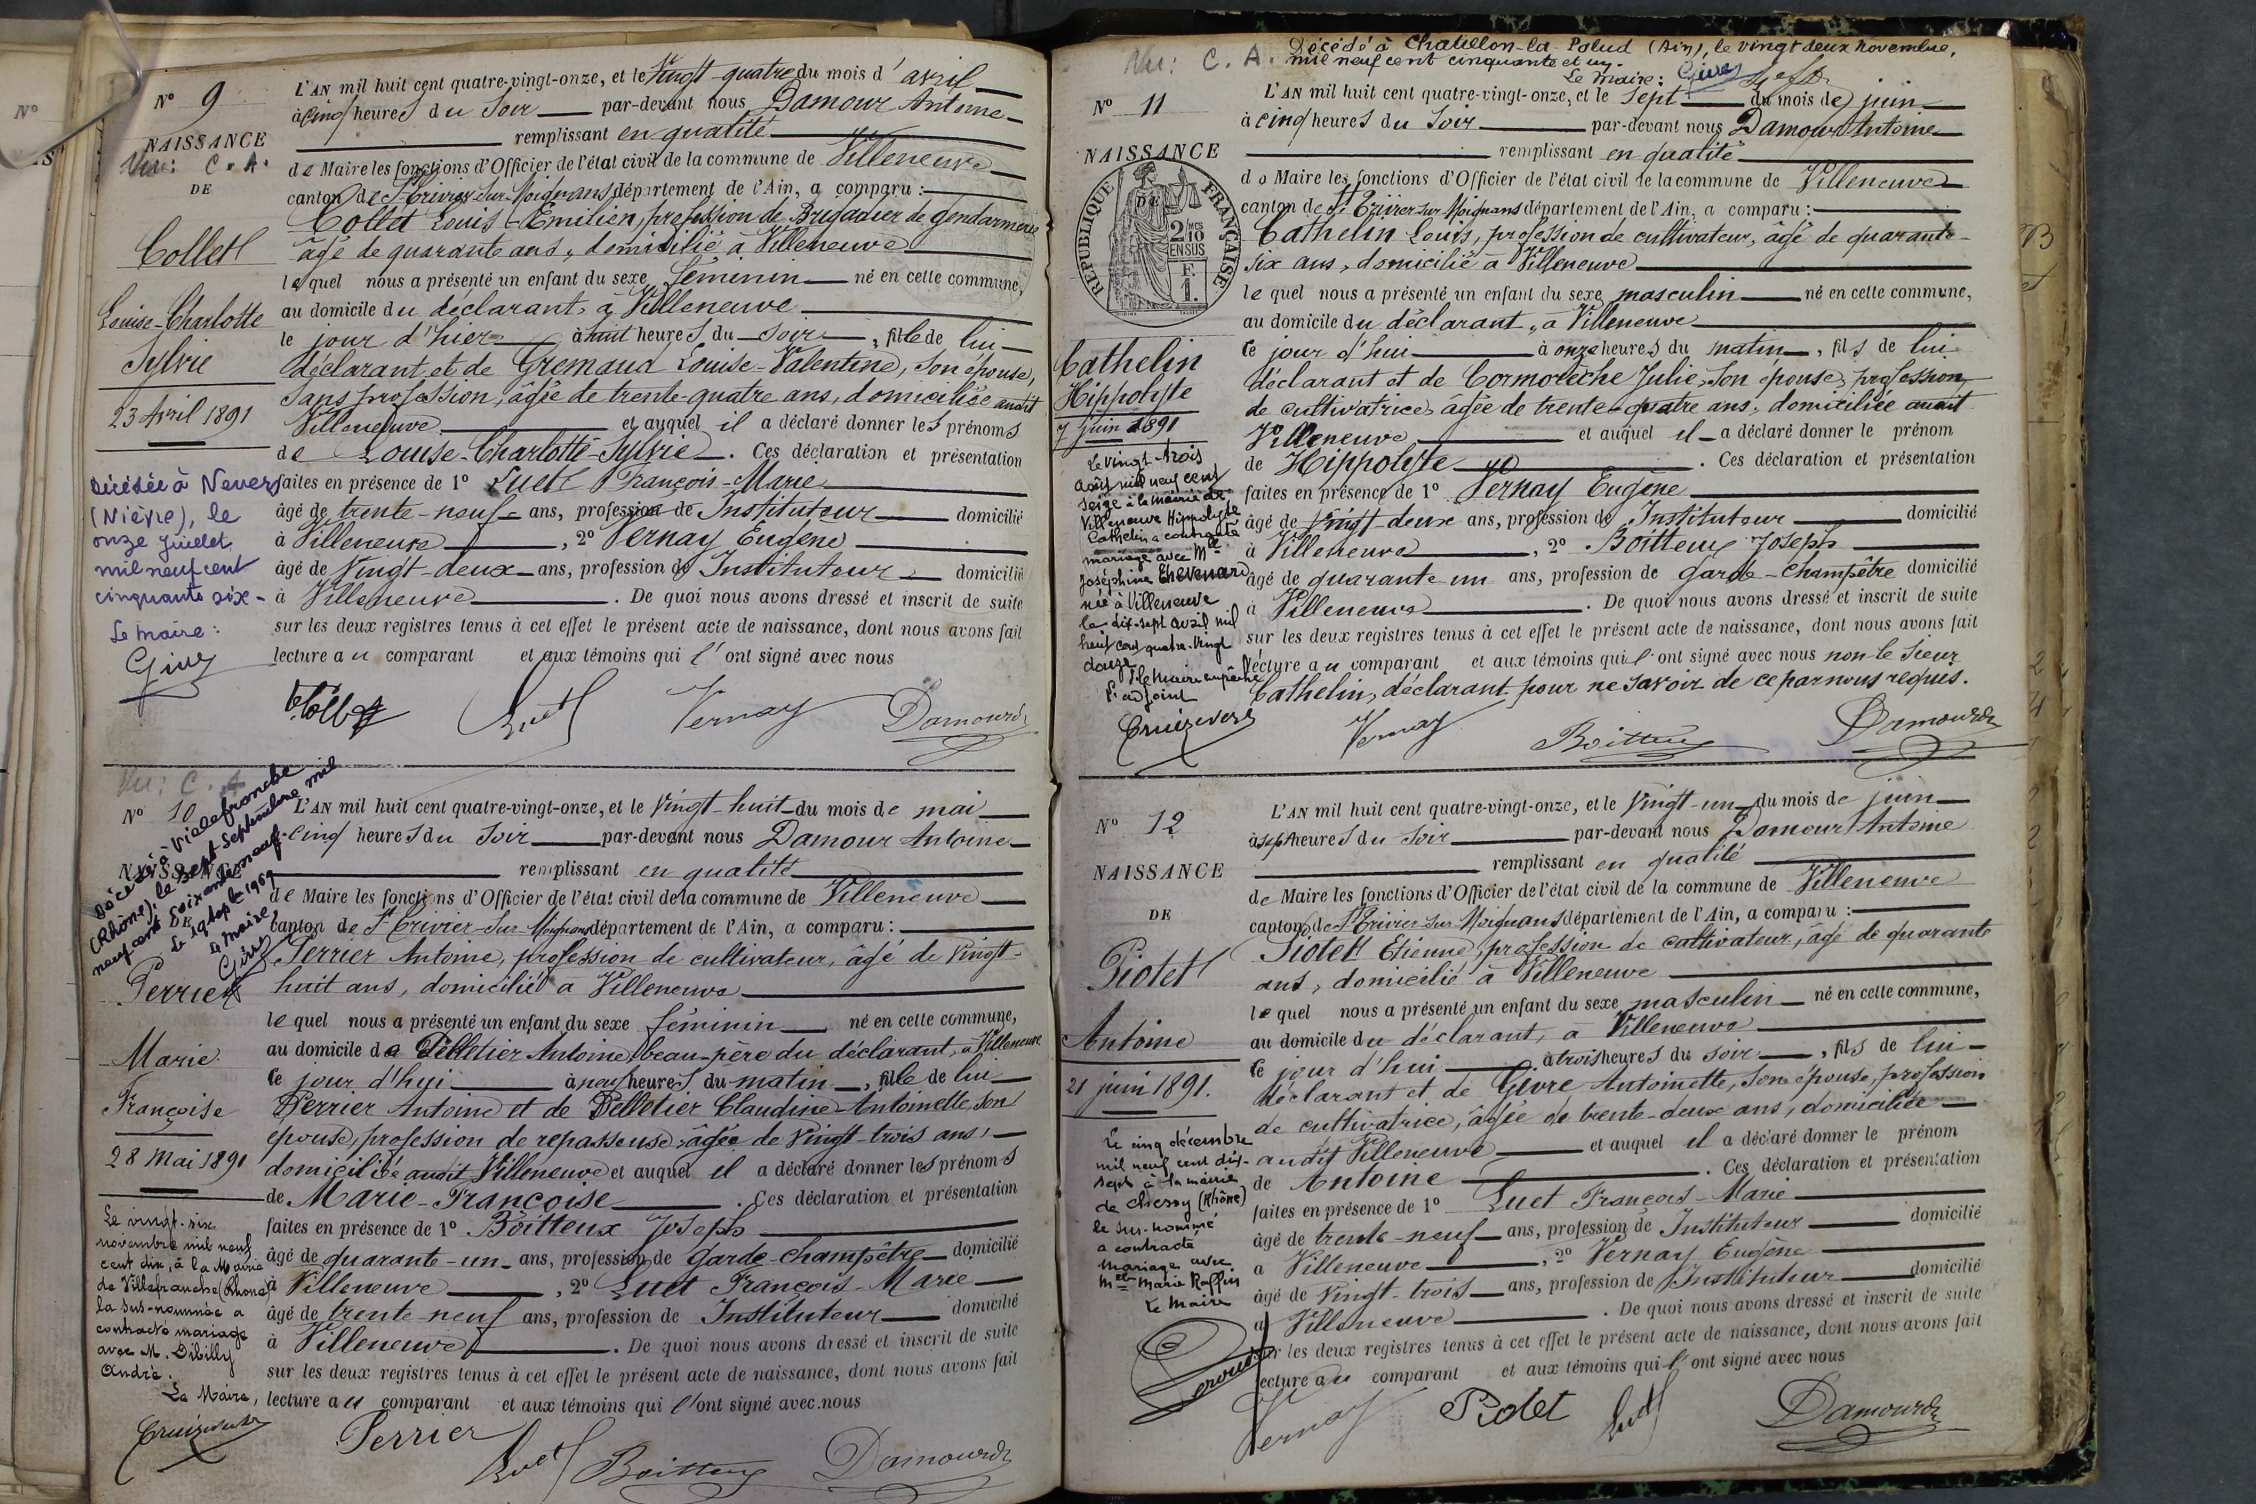 N° 9
NAISSANCE
Vu : C. A.
DE
Collet
Louise-Charlotte
Sylvie
23 Avril 1891
Décédée à Nevers
(Nièvre), le
onze Juillet
mil neuf cent
cinquante six -
Le Maire :
L'AN mil huit cent quatre-vingt-onze, et le Vingt-quatre du mois d'avril
à cinq heures du Soir par-devant nous Damour Antoine
remplissant en qualité
de Maire les fonctions d'Officier de l'état civil de la commune de Villeneuve
canton de St Trivier-sur-Moignans département de l'Ain, a comparu :
Collet Louis-Emilien, profession de Brigadier de gendarmerie
âgé de quarante ans, domicilié à Villeneuve
lequel nous a présenté un enfant du sexe féminin né en cette commune,
au domicile du déclarant, à Villeneuve
le jour d'hier à huit heures du soir, fille de lui
déclarant et de Gremaud Louise-Valentine, son épouse,
sans profession, âgée de trente-quatre ans, domiciliée audit
Villeneuve et auquel il a déclaré donner les prénoms
de Louise-Charlotte-Sylvie. Ces déclaration et présentation
faites en présence de 1° Luet François-Marie
âgé de trente-neuf ans, profession de Instituteur domicilié
à Villeneuve, 2° Vernay Eugène
âgé de Vingt-deux ans, profession de Instituteur domicilié
à Villeneuve. De quoi nous avons dressé et inscrit de suite
sur les deux registres tenus à cet effet le présent acte de naissance, dont nous avons fait
lecture au comparant et aux témoins qui l'ont signé avec nous
Collet Luet Vernay Damour
Vu : C. A.
N° 10
NAISSANCE
DE
Décédé à Villefranche
(Rhône), le sept Septembre mil
neuf cent soixante neuf
Le 19 Sept 1969
Le Maire,
Perrier
Marie
Françoise
28 Mai 1891
Le vingt-six
novembre mil neuf
cent dix, à la Mairie
de Villefranche (Rhône)
la sus-nommée a
contracté mariage
avec M. Dibilly
André.
Le Maire,
L'AN mil huit cent quatre-vingt-onze, et le Vingt-huit du mois de mai
à cinq heures du Soir par-devant nous Damour Antoine
remplissant en qualité
de Maire les fonctions d'Officier de l'état civil de la commune de Villeneuve
canton de St Trivier-sur-Moignans département de l'Ain, a comparu :
Perrier Antoine, profession de cultivateur, âgé de Vingt-
huit ans, domicilié à Villeneuve
lequel nous a présenté un enfant du sexe féminin né en cette commune,
au domicile de Pelletier Antoine, beau-père du déclarant, à Villeneuve
ce jour d'hui à neuf heures du matin, fille de lui
Perrier Antoine et de Pelletier Claudine-Antoinette, son
épouse, profession de repasseuse, âgée de Vingt-trois ans,
domiciliée audit Villeneuve et auquel il a déclaré donner les prénoms
de Marie-Françoise. Ces déclaration et présentation
faites en présence de 1° Boitteux Joseph
âgé de quarante-un ans, profession de Garde-champêtre domicilié
à Villeneuve, 2° Luet François-Marie
âgé de trente-neuf ans, profession de Instituteur domicilié
à Villeneuve. De quoi nous avons dressé et inscrit de suite
sur les deux registres tenus à cet effet le présent acte de naissance, dont nous avons fait
lecture au comparant et aux témoins qui l'ont signé avec nous
Perrier Luet Boitteux Damour
Vu : C. A.
Décédé à Chatillon-la-Palud (Ain), le vingt deux novembre,
mil neuf cent cinquante et un.
Le maire :
N° 11
NAISSANCE
DE
RÉPUBLIQUE FRANÇAISE
2/10 EN SUS
F. 1.
Cathelin
Hippolyte
7 juin 1891
Le vingt-trois
août mil neuf cent
seize à la mairie de
Villeneuve Hippolyte
Cathelin a contracté
mariage avec Mlle
Joséphine Thevenard
née à Villeneuve
le dix-sept avril mil
huit cent quatre-vingt
douze
P. le Maire empêché
L'adjoint
L'AN mil huit cent quatre-vingt-onze, et le Sept du mois de juin
à cinq heures du Soir par-devant nous Damour Antoine
remplissant en qualité
de Maire les fonctions d'Officier de l'état civil de la commune de Villeneuve
canton de St Trivier sur Moignans département de l'Ain, a comparu :
Cathelin Louis, profession de cultivateur, âgé de quarante-
six ans, domicilié à Villeneuve
lequel nous a présenté un enfant du sexe masculin né en cette commune,
au domicile du déclarant, à Villeneuve
ce jour d'hui à onze heures du matin, fils de lui
déclarant et de Cormorèche Julie, son épouse, profession
de cultivatrice, âgée de trente-quatre ans, domiciliée audit
Villeneuve et auquel il a déclaré donner le prénom
de Hippolyte. Ces déclaration et présentation
faites en présence de 1° Vernay Eugène
âgé de Vingt-deux ans, profession de Instituteur domicilié
à Villeneuve, 2° Boitteux Joseph
âgé de quarante un ans, profession de garde-champêtre domicilié
à Villeneuve. De quoi nous avons dressé et inscrit de suite
sur les deux registres tenus à cet effet le présent acte de naissance, dont nous avons fait
lecture au comparant et aux témoins qui l'ont signé avec nous non le Sieur
Cathelin, déclarant pour ne savoir de ce par nous requis.
Vernay Boitteux Damour
N° 12
NAISSANCE
DE
Piotet
Antoine
21 juin 1891.
Le cinq décembre
mil neuf cent dix-
sept à la mairie
de Chessy (Rhône)
le sus-nommé
a contracté
mariage avec
Melle Marie Raffin
Le Maire
L'AN mil huit cent quatre-vingt-onze, et le Vingt-un du mois de juin
à sept heures du Soir par-devant nous Damour Antoine
remplissant en qualité
de Maire les fonctions d'Officier de l'état civil de la commune de Villeneuve
canton de St Trivier-sur-Moignans département de l'Ain, a comparu :
Piotet Etienne, profession de cultivateur, âgé de quarante
ans, domicilié à Villeneuve
lequel nous a présenté un enfant du sexe masculin né en cette commune,
au domicile du déclarant, à Villeneuve
ce jour d'hui à trois heures du soir, fils de lui
déclarant et de Givre Antoinette, son épouse, profession
de cultivatrice, âgée de trente-deux ans, domiciliée
audit Villeneuve et auquel il a déclaré donner le prénom
de Antoine. Ces déclaration et présentation
faites en présence de 1° Luet François-Marie
âgé de trente-neuf ans, profession de Instituteur domicilié
à Villeneuve, 2° Vernay Eugène
âgé de Vingt-trois ans, profession de Instituteur domicilié
à Villeneuve. De quoi nous avons dressé et inscrit de suite
sur les deux registres tenus à cet effet le présent acte de naissance, dont nous avons fait
lecture au comparant et aux témoins qui l'ont signé avec nous
Vernay Piotet Luet Damour